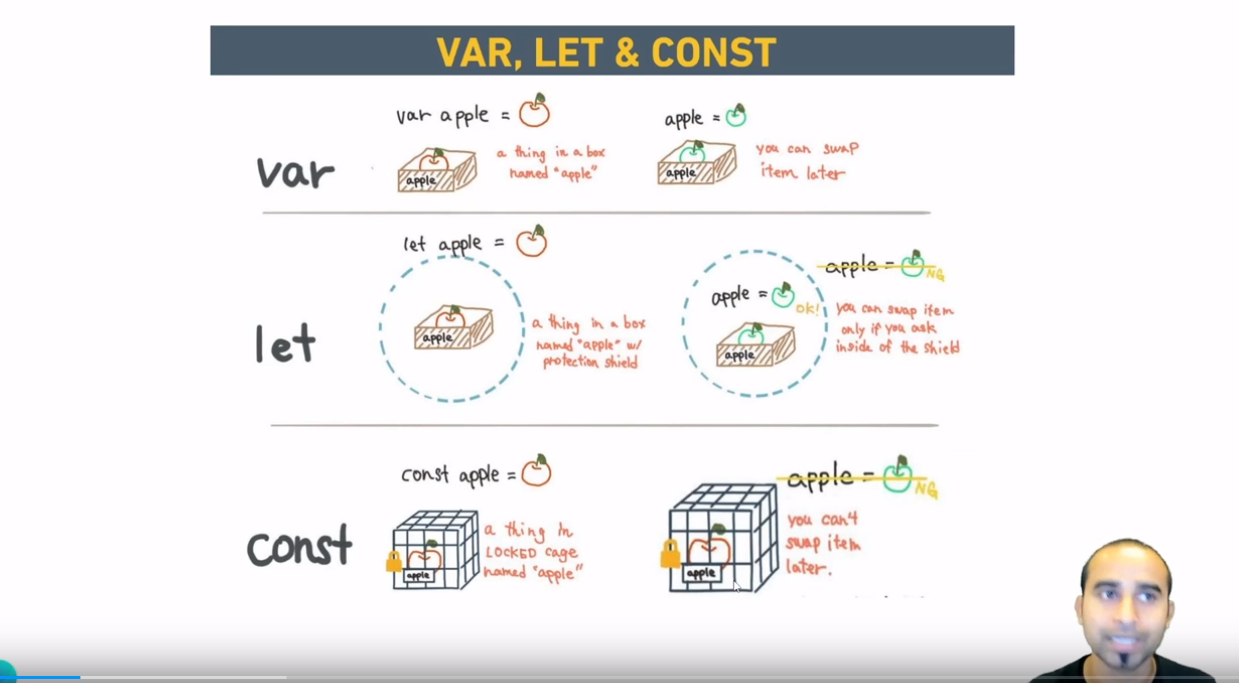 VAR, LET & CONST
var
var apple =
apple
a thing in a box
named "apple"
apple =
apple
you can swap
item later
let
let apple =
apple
a thing in a box
named "apple" w/
protection shield
apple =
OK!
apple
apple =
NG
you can swap item
only if you ask
inside of the shield
const
const apple =
apple
a thing in
LOCKED cage
named "apple"
apple
apple =
NG
you can't
swap item
later.